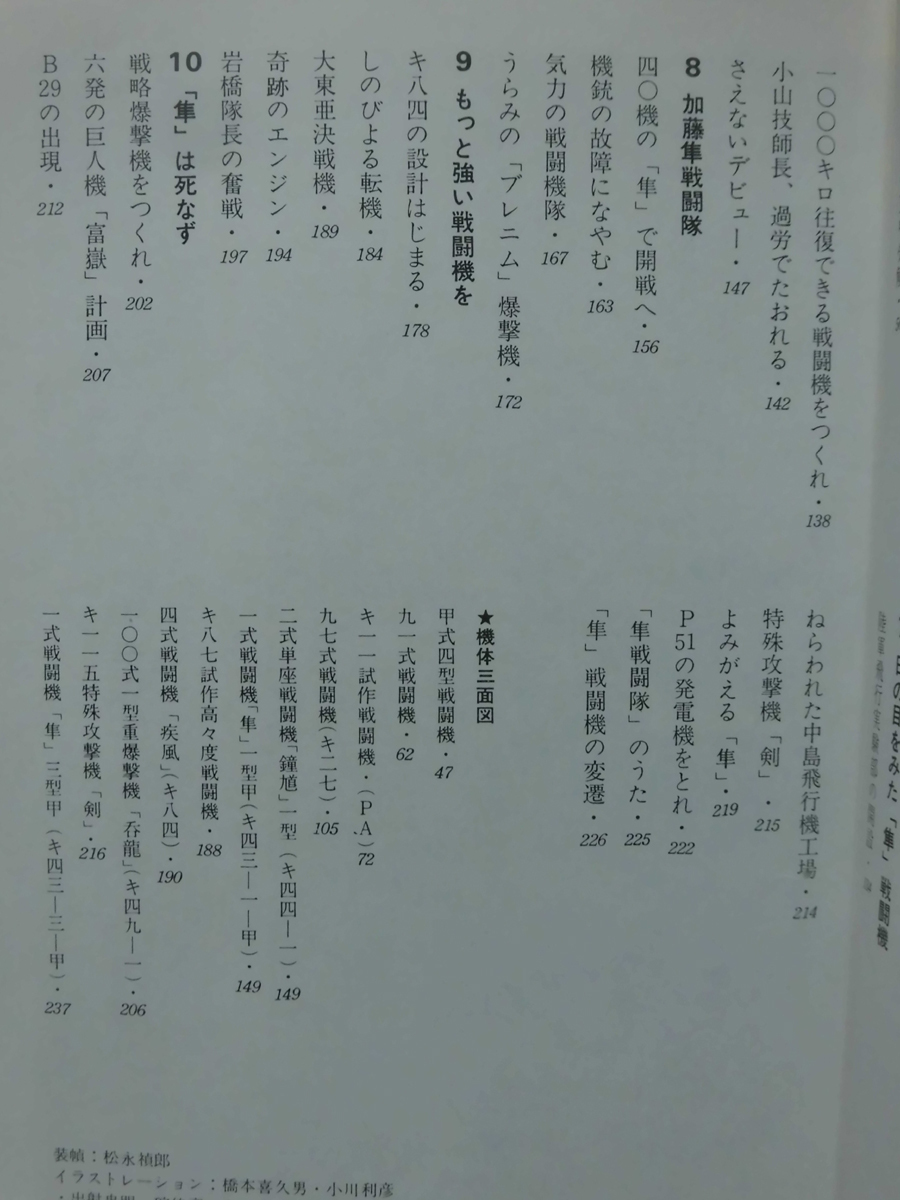 一〇〇〇キロ往復できる戦闘機をつくれ・138
小山技師長、過労でたおれる・142
さえないデビュー・147
8 加藤隼戦闘隊
四〇機の「隼」で開戦へ・156
機銃の故障になやむ・163
気力の戦闘機隊・167
うらみの「ブレニム」爆撃機・172
9 もっと強い戦闘機を
キ八四の設計はじまる・178
しのびよる転機・184
大東亜決戦機・189
奇跡のエンジン・194
岩橋隊長の奮戦・197
10 「隼」は死なず
戦略爆撃機をつくれ・202
六発の巨人機「富嶽」計画・207
B29の出現・212
ねらわれた中島飛行機工場・214
特殊攻撃機「剣」・215
よみがえる「隼」・219
P51の発電機をとれ・222
「隼戦闘隊」のうた・225
「隼」戦闘機の変遷・226
★機体三面図
甲式四型戦闘機・47
九一式戦闘機・62
キ一一試作戦闘機・(P.A)72
九七式戦闘機(キ二七)・105
二式単座戦闘機「鐘馗」一型(キ四四―一)・149
一式戦闘機「隼」一型甲(キ四三―一―甲)・149
キ八七試作高々度戦闘機・188
四式戦闘機「疾風」(キ八四)・190
一〇〇式一型重爆撃機「呑龍」(キ四九―一)・206
キ一一五特殊攻撃機「剣」・216
一式戦闘機「隼」三型甲(キ四三―三―甲)・237
日の目をみた「隼」戦闘機
装幀：松永禎郎
イラストレーション：橋本喜久男・小川利彦